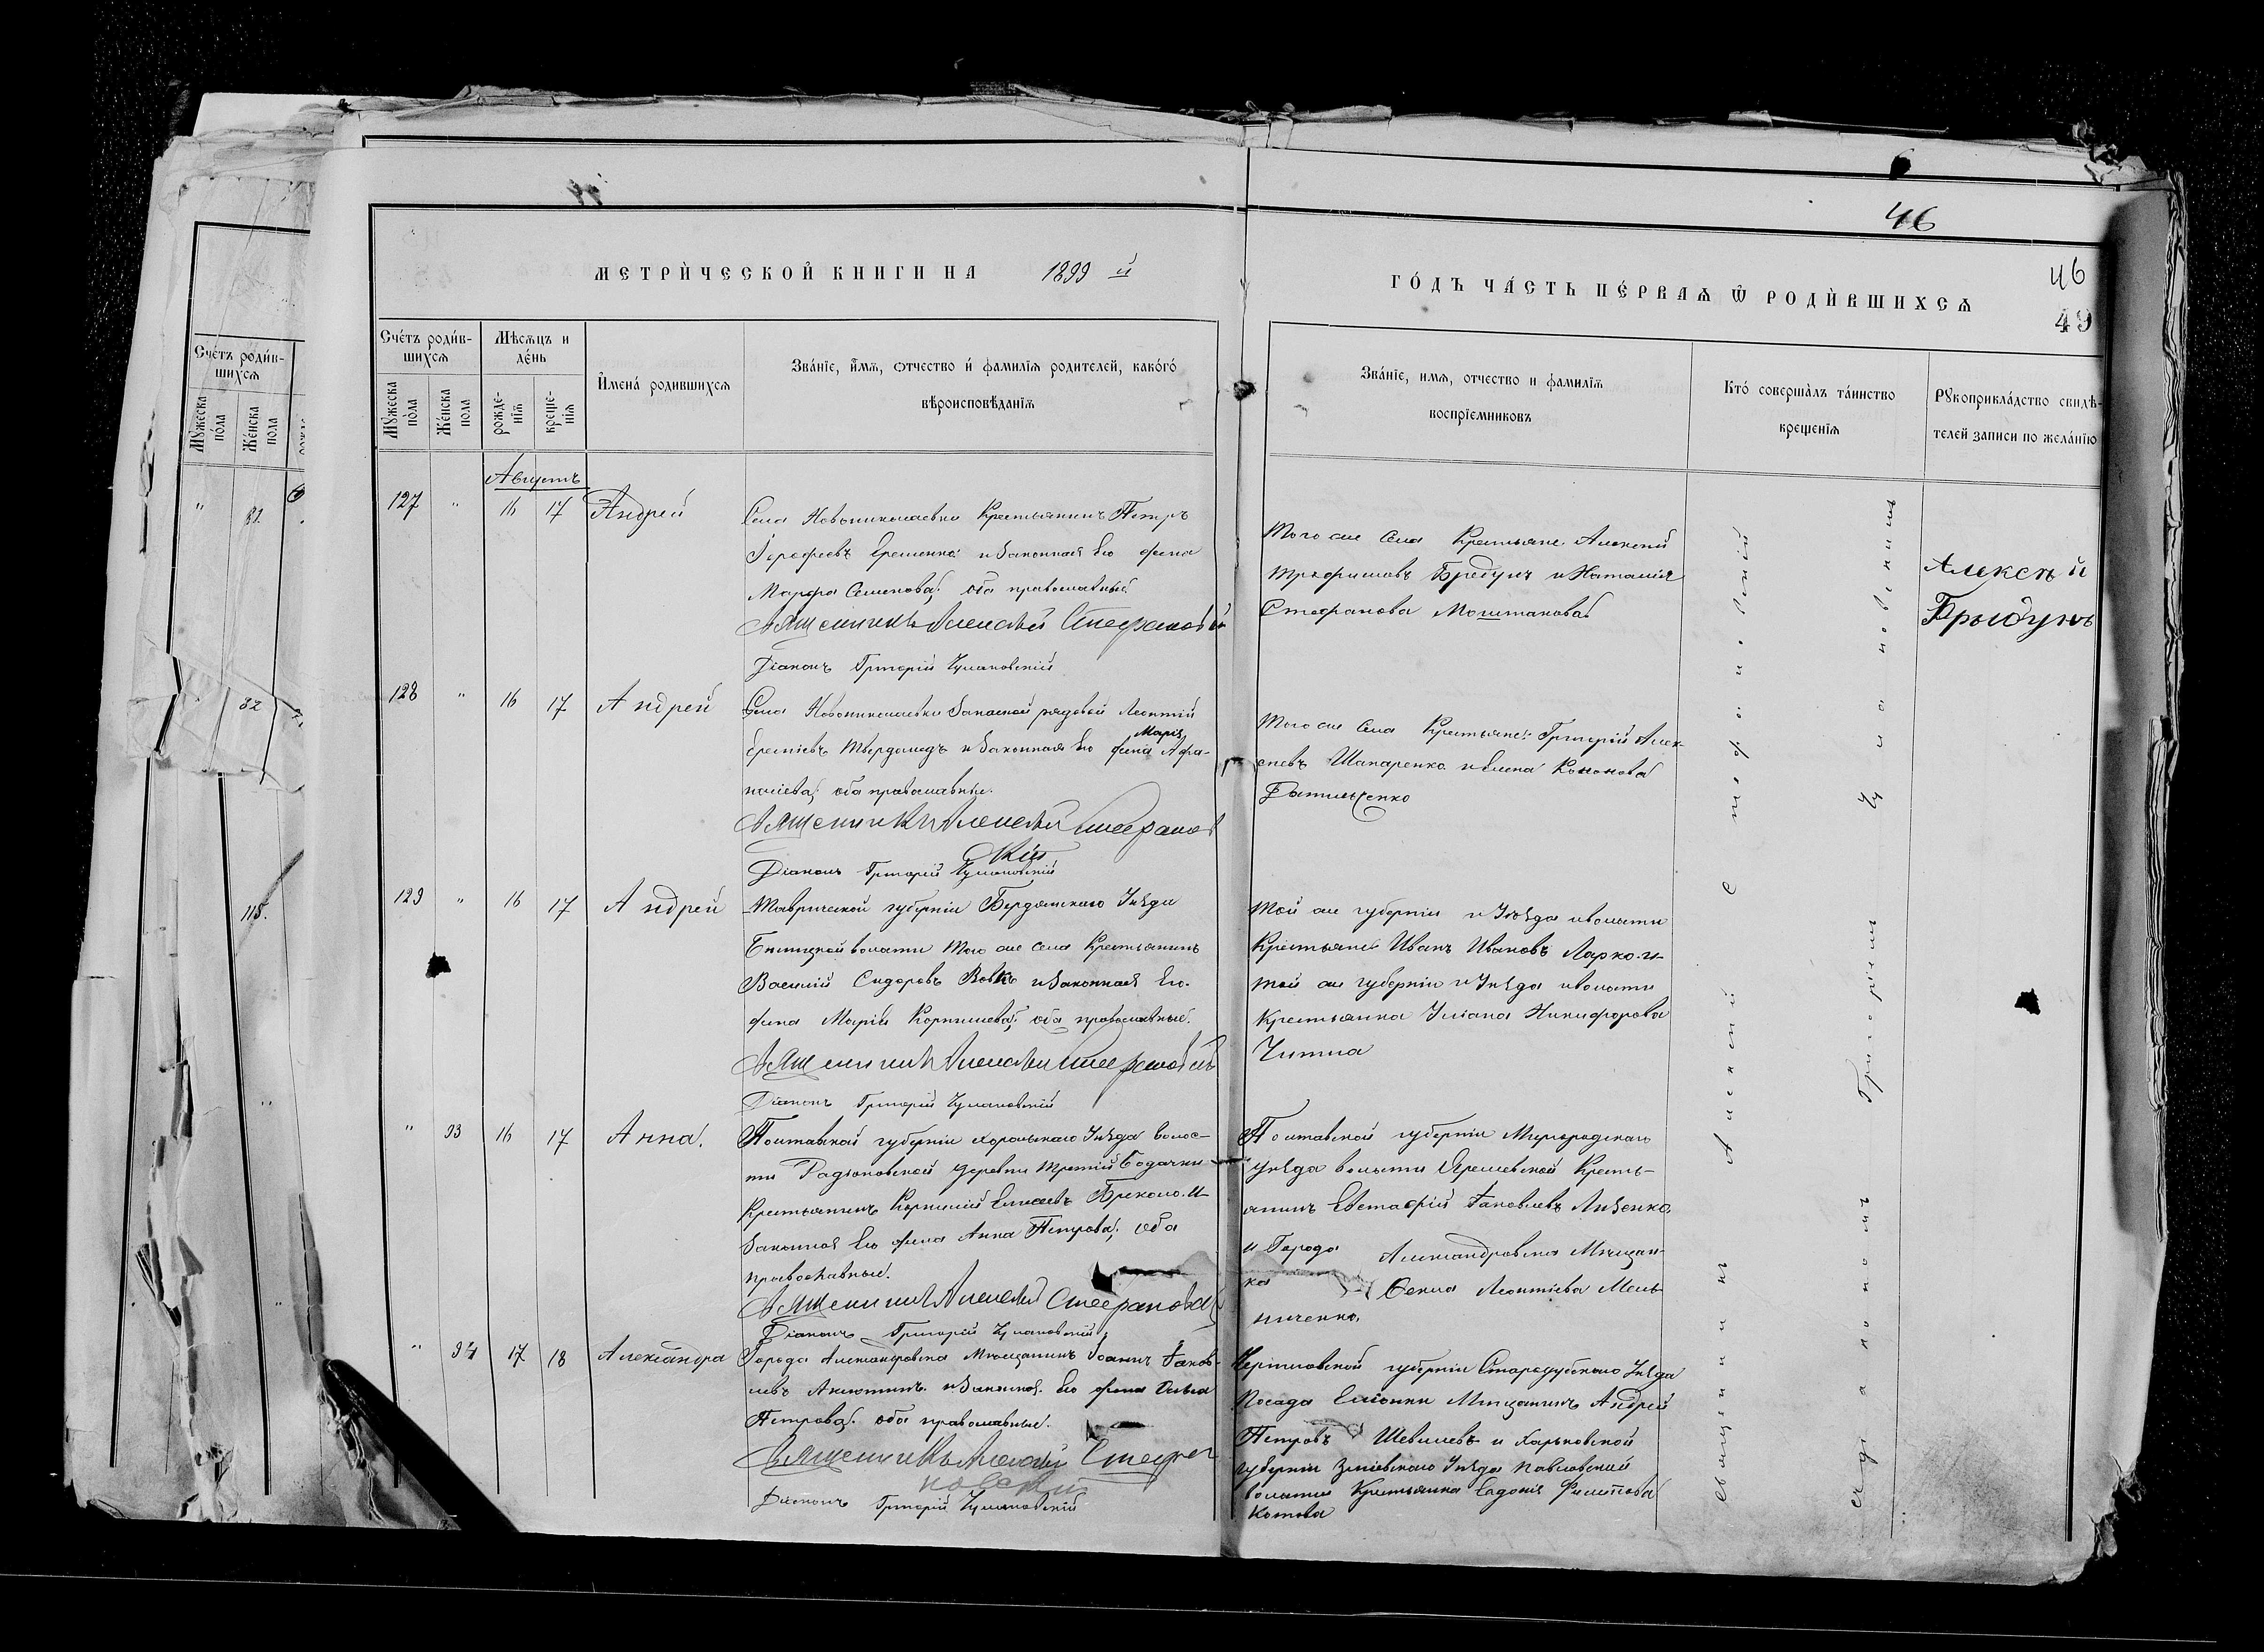 46
МЕТРИ́ЧЕСКОЙ КНИГИ НА 1899 й
ГО́ДЪ ЧА́СТЬ ПЕ́РВАѦ Ѡ҆ РОДИ́ВШИХСѦ
46
49
Сче́тъ роди́в-
шихсѧ
Мѣсѧцъ и
де́нь
Мꙋжеска
по́ла
Же́нска
пола
рожде-
нїѧ
креще-
нїѧ
И҆мена́ родившихсѧ
Зва́нїе, и҆́мѧ, ѻтчество и҆ фамилїѧ родителей, како́гѡ́
вѣроисповѣданїѧ
Зва́нїе, имѧ, отчество и фамилїѧ
воспрїемниковъ
Кто́ соверша̀лъ та́инство
крещенїѧ
Рꙋкоприкла́дство свидѣ-
телей записи по жела́нїю
Сче́тъ роди́в-
шихсѧ
Мꙋжеска
по́ла
Же́нска
пола
" 81.
82
115.
Августъ
127 " 16 17 Андрей
Села Новониколаевки Крестьянинъ Петръ
Ерофеевъ Еременко и законная его жена
Марфа Семенова; оба православные
Священникъ Алексѣй Стефановскій
Діаконъ Григорій Чулановскій
Того же села Крестьяне Алексѣй
Трофимовъ Бредунъ и Наталія
Стефанова
Алексѣй
Брыдунъ
128 " 16 17 Андрей
Села Новониколаевки Запасной рядовой Леонтій
Еремѣевъ Твердохлѣдъ и законная его жена Марія Афа-
насіева; оба православные.
Священникъ Алексѣй Стефанов
скій
Діаконъ Григорій Чулановскій
Того же села Крестьяне: Григорій Алек-
сѣевъ Шапаренко и Елена Кононова
Данильченко
129 " 16 17 Андрей
Таврической губерніи Бердянскаго Уѣзда
волости того же села Крестьянинъ
Василій Сидоровъ Вовкъ и законная его
жена Марія Корнилиева; оба православные.
Священникъ Алексѣй Стефановскій
Діаконъ Григорій Чулановскій
Той же губерніи и Уѣзда и волости
Крестьяне Иванъ Ивановъ Ларко и
той же губерніи и Уѣзда и волости
Крестьянка Уліана Никифорова
" 93 16 17 Анна.
Полтавской губерніи Хорольскаго Уѣзда волос-
ти Радіоновской деревни Третій
Крестьянинъ Корнилій Елисеевъ и
законная его жена Анна Петрова; оба
православные.
Священникъ Алексѣй Стефановскій
Діаконъ Григорій Чулановскій
Полтавской губерніи Миргородскаго
Уѣзда волости Ярешевской Кресть-
янинъ Евстафій Іаковлевъ Лизенко.
и Города Александровска Мѣщан-
ка Фекла Леонтіева Мель-
ниченко.
" 94 17 18 Александра
Города Александровска Мѣщанинъ Іоаннъ Іаков-
левъ Анютинъ и законная его жена Ольга
Петрова; оба православные.
Священникъ Алексѣй Стефа
новскій
Діаконъ Григорій Чулановскій
Черниговской губерніи Стародубскаго Уѣзда
Посада Еліонки Мѣщанинъ Андрей
Петровъ Шевелевъ и Харьковской
губерніи Зміевскаго Уѣзда Павловской
волости Крестьянка Евдокія Филипова
Котова
Священникъ Алексѣй Стефановскій
съ діакономъ Григоріемъ Чулановскимъ